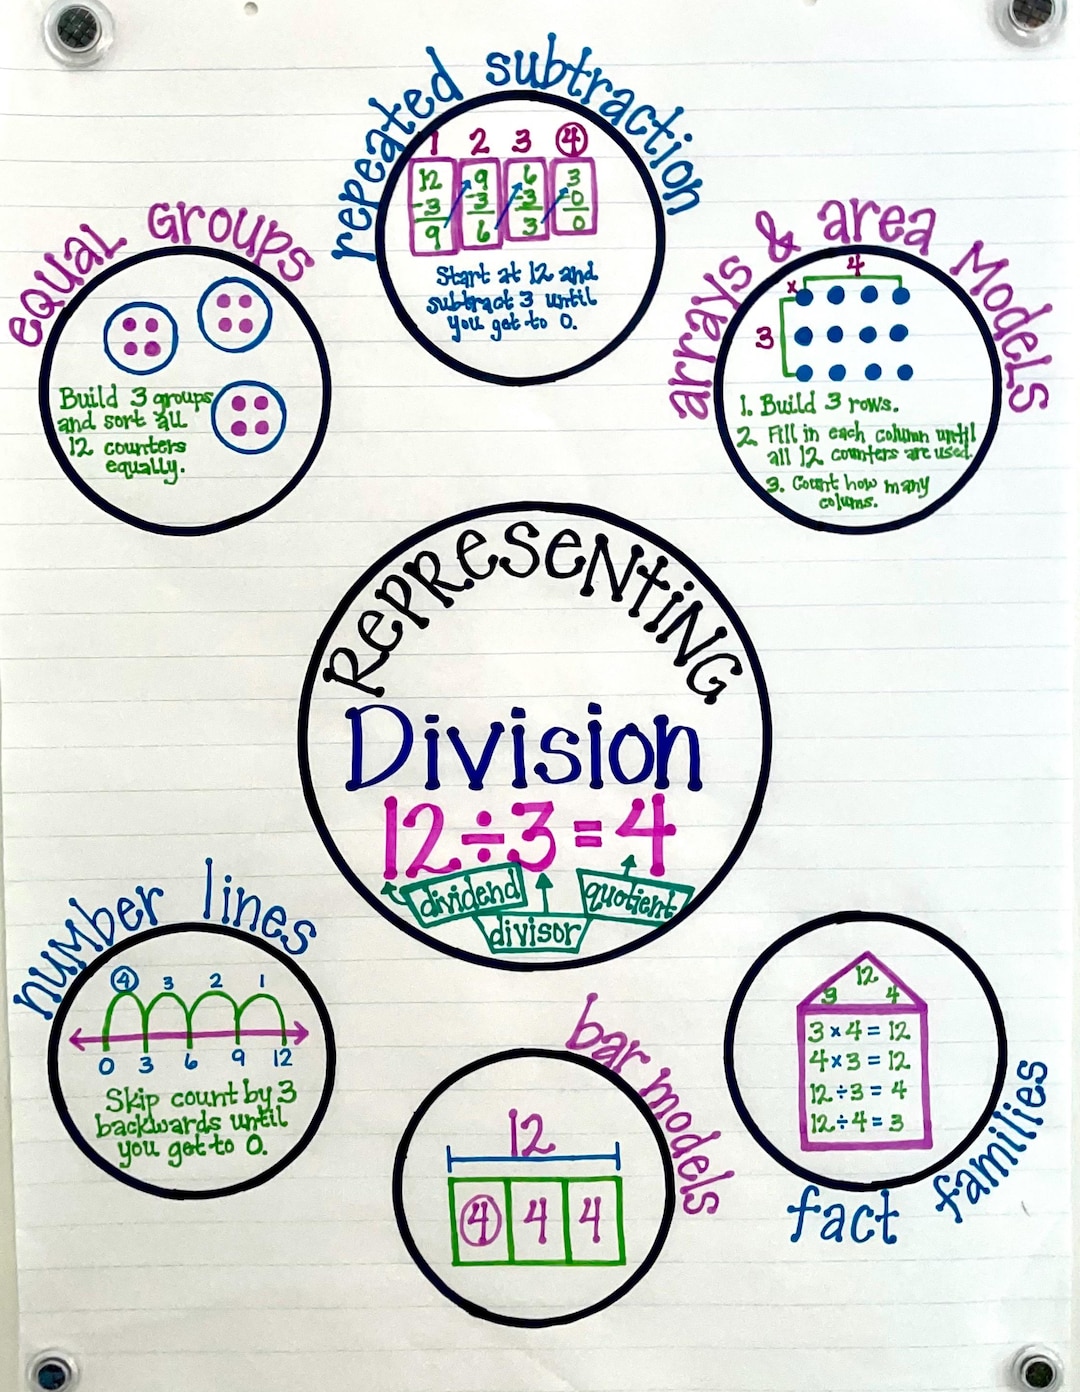 repeated subtraction
1 2 3 4
12 9 6 3
-3 -3 -3 -0
9 6 3 0
Start at 12 and
subtract 3 until
you get to 0.
equal Groups
Build 3 groups
and sort all
12 counters
equally.
arrays & area Models
4
x
3
1. Build 3 rows.
2. Fill in each column until
all 12 counters are used.
3. Count how many
colums.
RepreseNtiNG
Division
12÷3=4
dividend
divisor
quotient
number lines
4 3 2 1
0 3 6 9 12
Skip count by 3
backwards until
you get to 0.
bar models
12
4 4 4
12
3 4
3×4=12
4×3=12
12÷3=4
12÷4=3
fact families